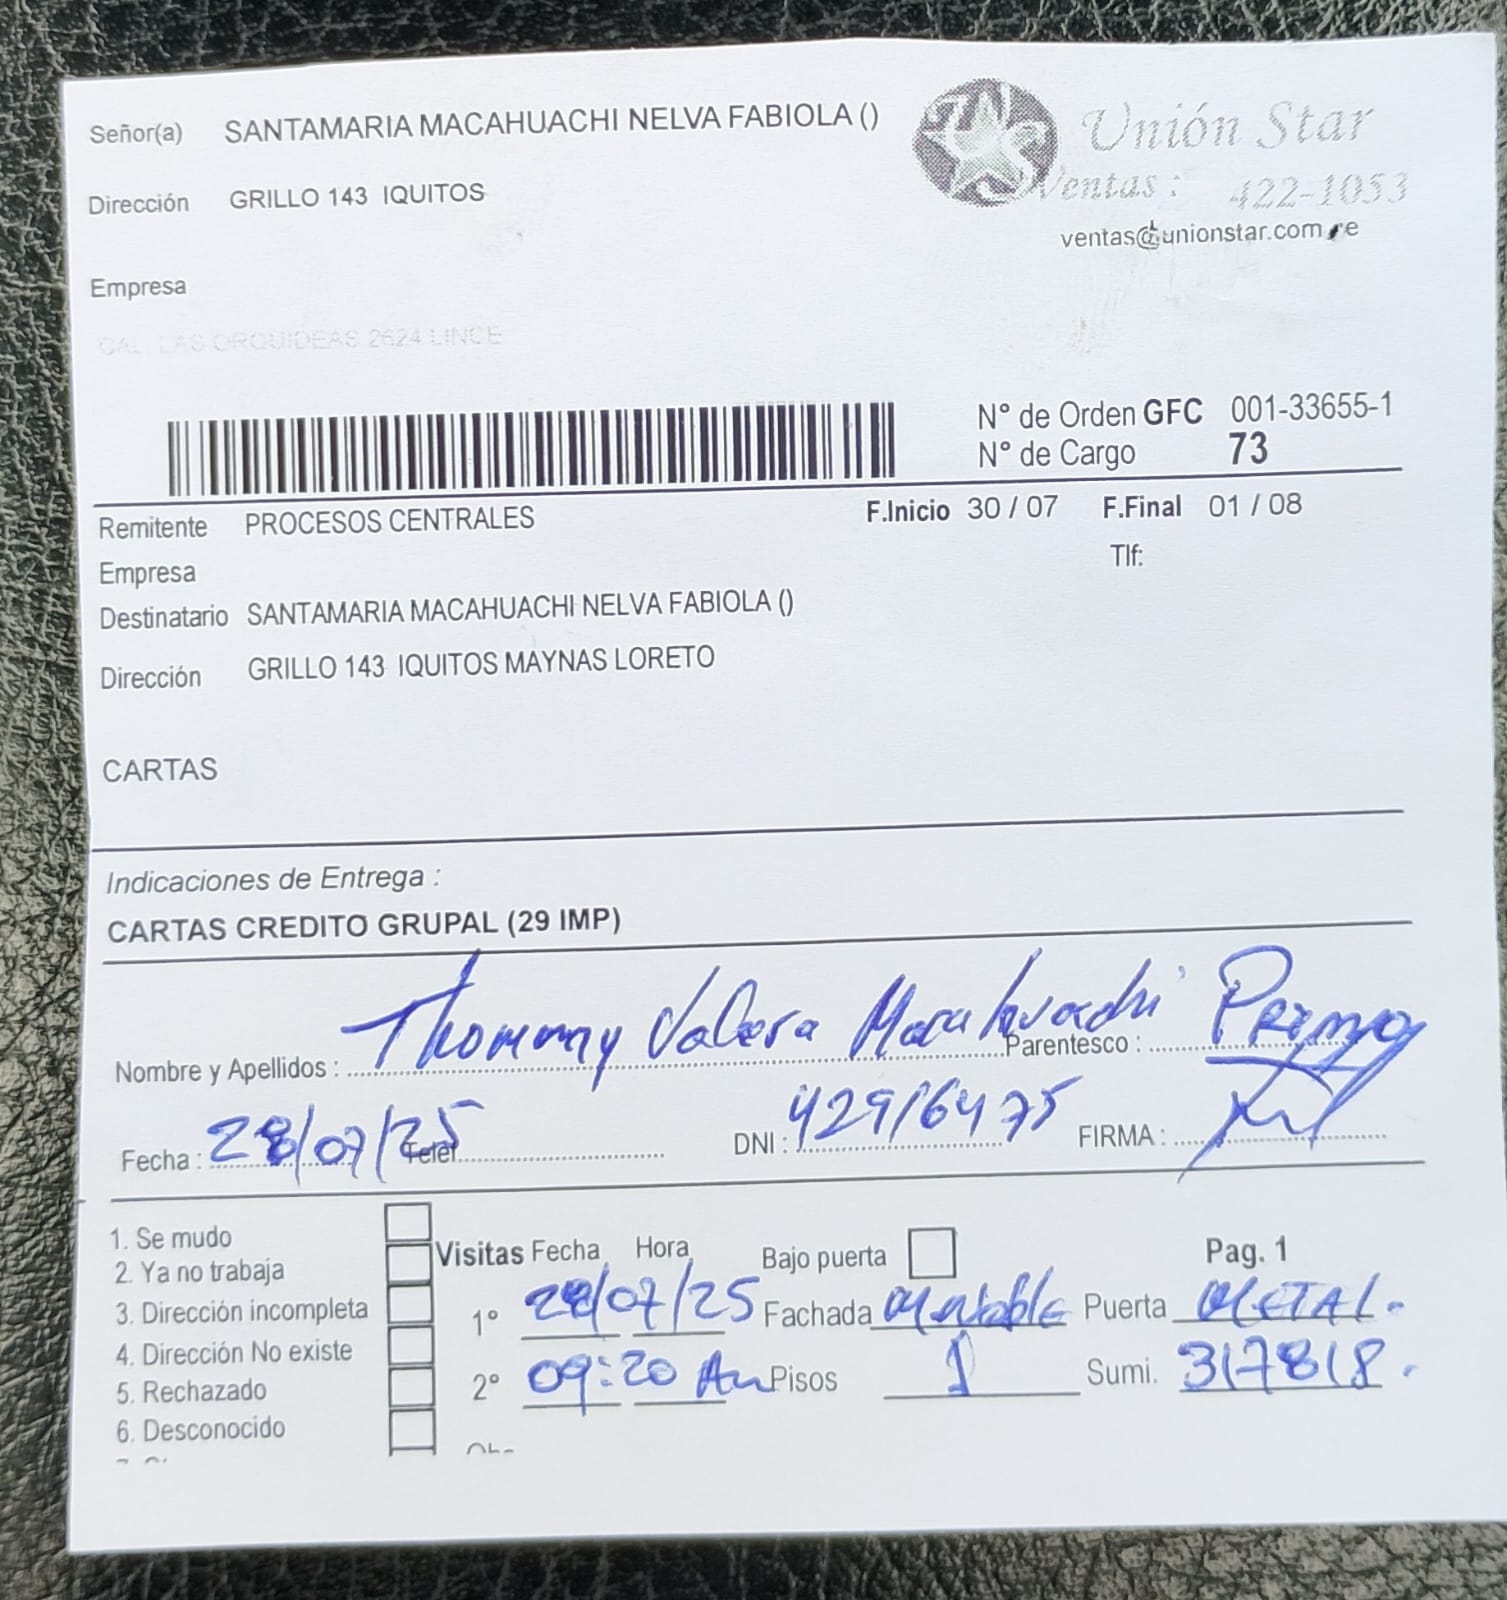 Señor(a) SANTAMARIA MACAHUACHI NELVA FABIOLA ()
Unión Star
Dirección GRILLO 143 IQUITOS
Ventas : 422-1053
ventas@unionstar.com e
Empresa
CAL LAS ORQUIDEAS 2624 LINCE
N° de Orden GFC 001-33655-1
N° de Cargo 73
Remitente PROCESOS CENTRALES F.Inicio 30 / 07 F.Final 01 / 08
Empresa Tlf:
Destinatario SANTAMARIA MACAHUACHI NELVA FABIOLA ()
Dirección GRILLO 143 IQUITOS MAYNAS LORETO
CARTAS
Indicaciones de Entrega :
CARTAS CREDITO GRUPAL (29 IMP)
Nombre y Apellidos : Thommy Valera Macahuachi Parentesco : Primo
Fecha : 28/07/25 Telef DNI : 42916475 FIRMA :
1. Se mudo
2. Ya no trabaja
3. Dirección incompleta
4. Dirección No existe
5. Rechazado
6. Desconocido
Visitas Fecha Hora Bajo puerta Pag. 1
1° /07/25 Fachada Puerta METAL.
2° 09:20 Am Pisos 1 Sumi. 317818.